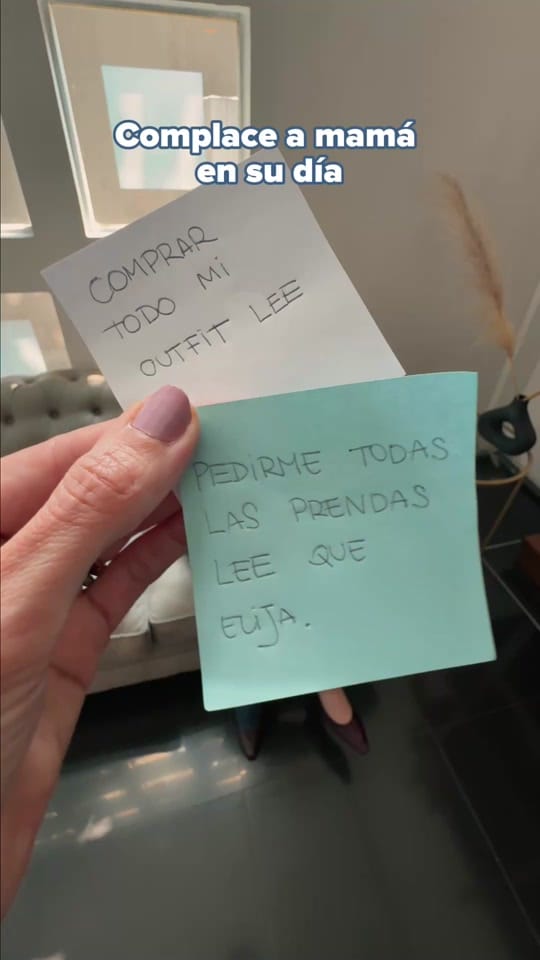 Complace a mamá
en su día
COMPRAR
TODO MI
OUTFIT LEE
PEDIRME TODAS
LAS PRENDAS
LEE QUE
ELIJA.